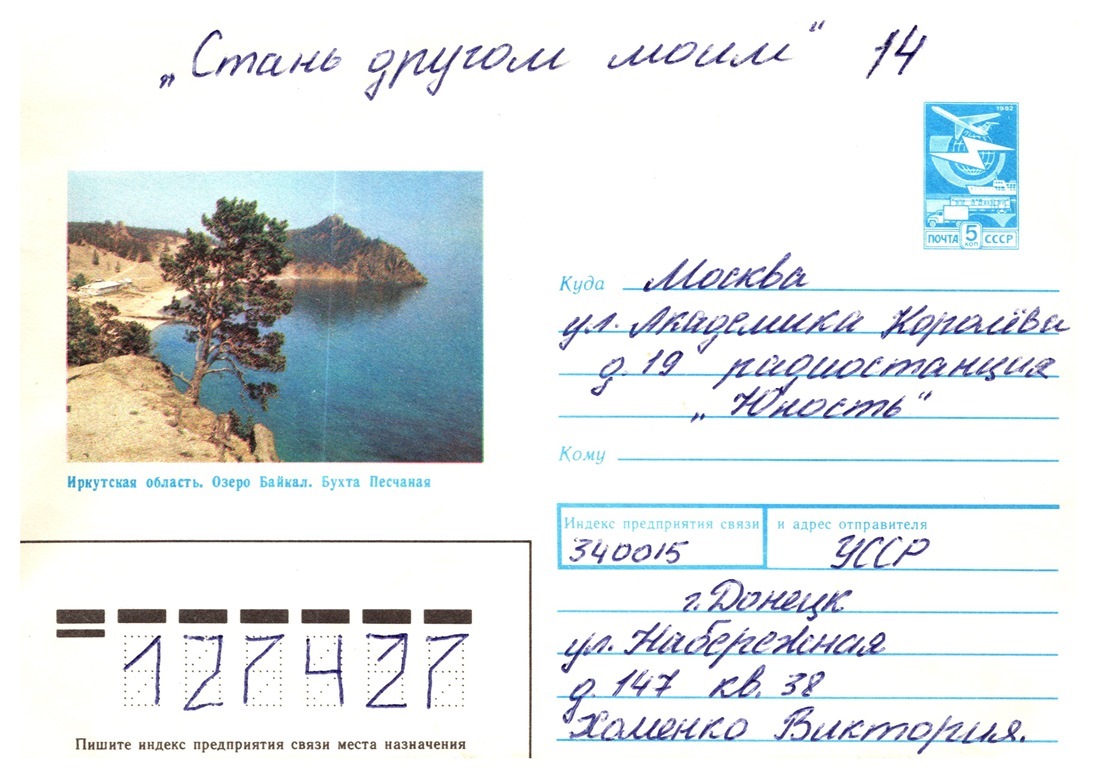 „Стань другом моим“ 14
1982
ПОЧТА 5 КОП СССР
Куда Москва
ул. Академика Королёва
д. 19 радиостанция
„Юность“
Кому
Иркутская область. Озеро Байкал. Бухта Песчаная
Индекс предприятия связи и адрес отправителя
340015 УССР
г. Донецк
ул. Набережная
д. 147 кв. 38
Хоменко Виктория.
127427
Пишите индекс предприятия связи места назначения